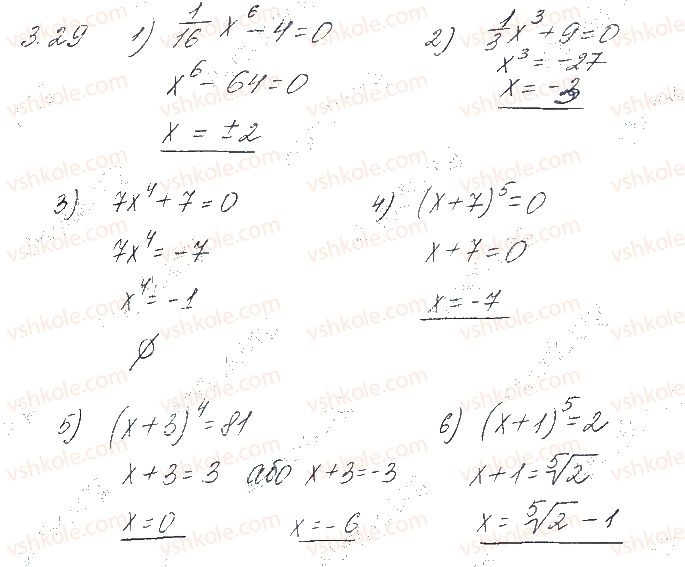 3.29 1) 1/16 x⁶ - 4 = 0
x⁶ - 64 = 0
x = ±2
2) 1/3 x³ + 9 = 0
x³ = -27
x = -3
3) 7x⁴ + 7 = 0
7x⁴ = -7
x⁴ = -1
∅
4) (x+7)⁵ = 0
x + 7 = 0
x = -7
5) (x+3)⁴ = 81
x + 3 = 3 або x + 3 = -3
x = 0 x = -6
6) (x+1)⁵ = 2
x + 1 = ⁵√2
x = ⁵√2 - 1
vshkole.com